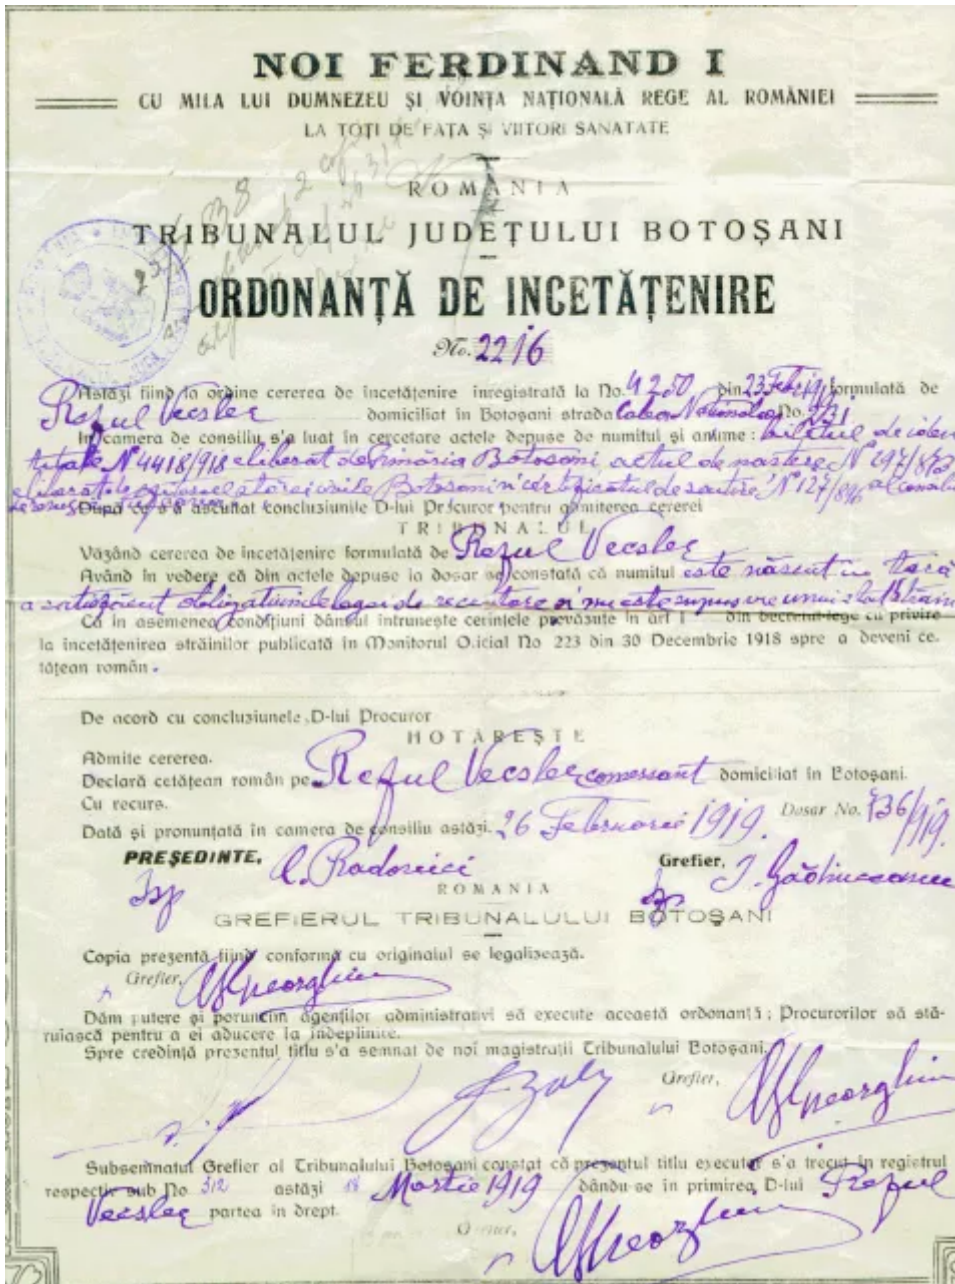 NOI FERDINAND I
CU MILA LUI DUMNEZEU ȘI VOINȚA NAȚIONALĂ REGE AL ROMÂNIEI
LA TOȚI DE FAȚA ȘI VIITORI SANATATE
ROMÂNIA
TRIBUNALUL JUDEȚULUI BOTOȘANI
ORDONANȚĂ DE INCETĂȚENIRE
No. 2216
Astăzi fiind la ordine cererea de incetățenire inregistrată la No. 4250 din 23 Febr 919 formulată de
Vecsler domiciliat în Botoșani strada Calea Națională No.
In camera de consiliu s'a luat in cercetare actele depuse de numitul și anume: biletul de iden
titate N 4418/918 eliberat de Primăria Botosani actul de nastere N
Botosani certificatul de N 127/
După ce s'a ascultat concluziunile D-lui Procuror pentru admiterea cererei
TRIBUNALUL
Văzând cererea de incetățenire formulată de Vecsler
Având in vedere că din actele depuse la dosar se constată că numitul este născut în țară
a satisfăcut obligațiunile legei de recrutare si nu este supus vre unui stat străin
Că in asemenea condițiuni dânsul intrunește cerințele prevăsute in art 1 din decretul-lege cu privire
la incetățenirea străinilor publicată in Monitorul Oficial No 223 din 30 Decembrie 1918 spre a deveni ce-
tățean român.
De acord cu concluziunele D-lui Procuror
HOTAREȘTE
Admite cererea.
Declară cetățean român pe Vecsler comersant domiciliat in Botoșani.
Cu recurs.
Dată și pronunțată in camera de consiliu astăzi 26 Februarie 1919. Dosar No. 736/919.
PREȘEDINTE, Grefier,
ROMANIA
GREFIERUL TRIBUNALULUI BOTOȘANI
Copia prezentă fiind conformă cu originalul se legalizează.
Grefier, Gheorghiu
Dăm putere și poruncim agenților administrativi să execute această ordonanță; Procurorilor să stă-
ruiască pentru a ei aducere la indeplinire.
Spre credință prezentul titlu s'a semnat de noi magistrații Tribunalului Botoșani.
Grefier, Gheorghiu
Subsemnatul Grefier al Tribunalului Botoșani constat că prezentul titlu executor s'a trecut in registrul
respectiv sub No 312 astăzi 18 Martie 1919 dându-se in primirea D-lui
Vecsler partea in drept.
Grefier, Gheorghiu